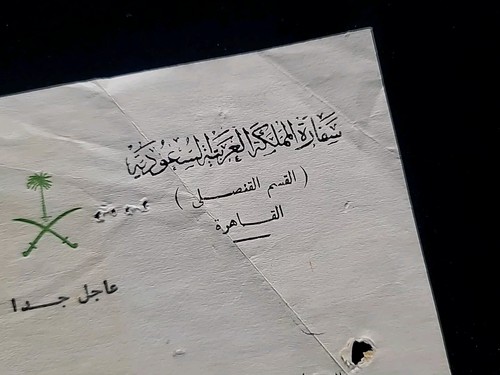 سفارة المملكة العربية السعودية
( القسم القنصلى )
القاهرة
عاجل جدا